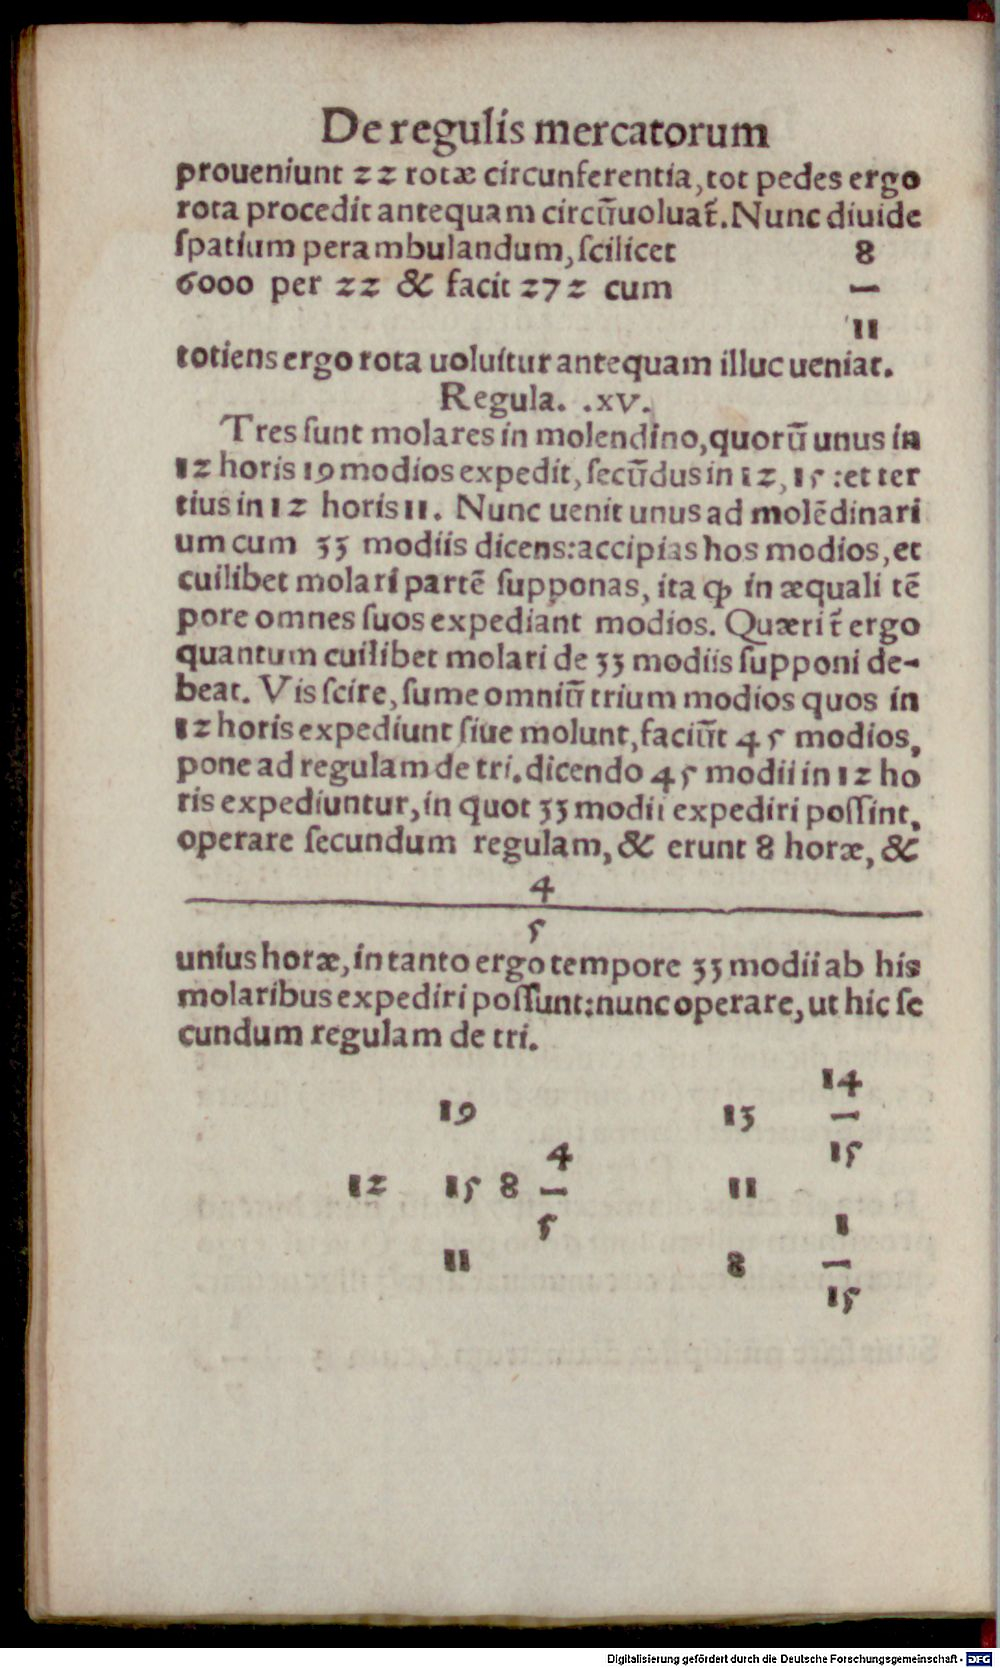 De regulis mercatorum
proueniunt 22 rotæ circunferentia, tot pedes ergo
rota procedit antequam circũuoluat̃. Nunc diuide
spatium perambulandum, scilicet 8
6000 per 22 & facit 272 cum —
11
totiens ergo rota uoluitur antequam illuc ueniat.
Regula. .XV.
Tres sunt molares in molendino, quorũ unus in
12 horis 19 modios expedit, secũdus in 12, 15 : et ter
tius in 12 horis 11. Nunc uenit unus ad molẽdinari
um cum 33 modiis dicens: accipias hos modios, et
cuilibet molari partẽ supponas, ita ꝙ in æquali tẽ
pore omnes suos expediant modios. Quærit̃ ergo
quantum cuilibet molari de 33 modiis supponi de-
beat. Vis scire, sume omniũ trium modios quos in
12 horis expediunt siue molunt, faciũt 45 modios,
pone ad regulam de tri. dicendo 45 modii in 12 ho
ris expediuntur, in quot 33 modii expediri possint,
operare secundum regulam, & erunt 8 horæ, &
4
5
unius horæ, in tanto ergo tempore 33 modii ab his
molaribus expediri possunt: nunc operare, ut hic se
cundum regulam de tri.
14
19 13 —
4 15
12 15 8 — 11
5 1
11 8 —
15
Digitalisierung gefördert durch die Deutsche Forschungsgemeinschaft - DFG